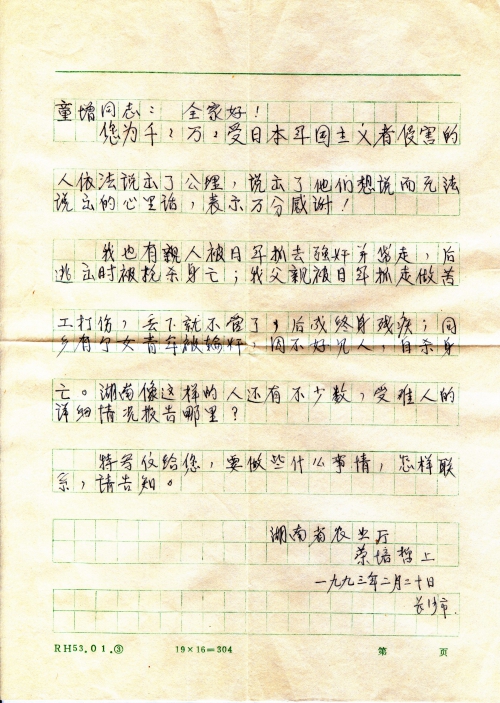 童增同志： 全家好！
您为千千万万受日本军国主义者侵害的
人依法说出了公理，说出了他们想说而无法
说出的心里话，表示万分感谢！
我也有亲人被日军抓去强奸并带走，后
逃出时被枪杀身亡；我父亲被日军抓走做苦
工打伤，丢下就不管了，后成终身残疾；同
乡有个女青年被轮奸，因不好见人，自杀身
亡。湖南像这样的人还有不少数，受难人的
详细情况报告哪里？
特写信给您，要做些什么事情，怎样联
系，请告知。
湖南省农业厅
培哲上
一九九三年二月二十日
长沙市.
RH53.01.③ 19×16=304 第 页